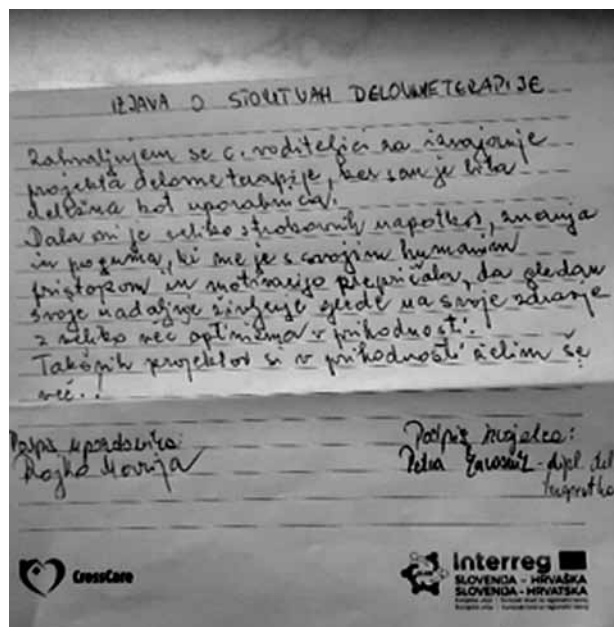 IZJAVA O STORITVAH DELOVNETERAPIJE
Zahvaljujem se c. voditeljici za izvajanje
projekta delovne terapije, ker sem je bila
deležna kot uporabnica.
Dala mi je veliko strokovnih napotkov, znanja
in poguma, ki me je s svojim humanim
pristopom in motivacijo prepričala, da gledam
svoje nadaljnje življenje glede na svoje zdravje
z veliko več optimizma v prihodnosti.
Takšnih projektov si v prihodnosti želim še
več..
Podpis uporabnika:
Rojko Marija
Podpis izvajalca:
Petra - dipl. del.
CrossCare
Interreg
SLOVENIJA - HRVAŠKA
SLOVENIJA - HRVATSKA